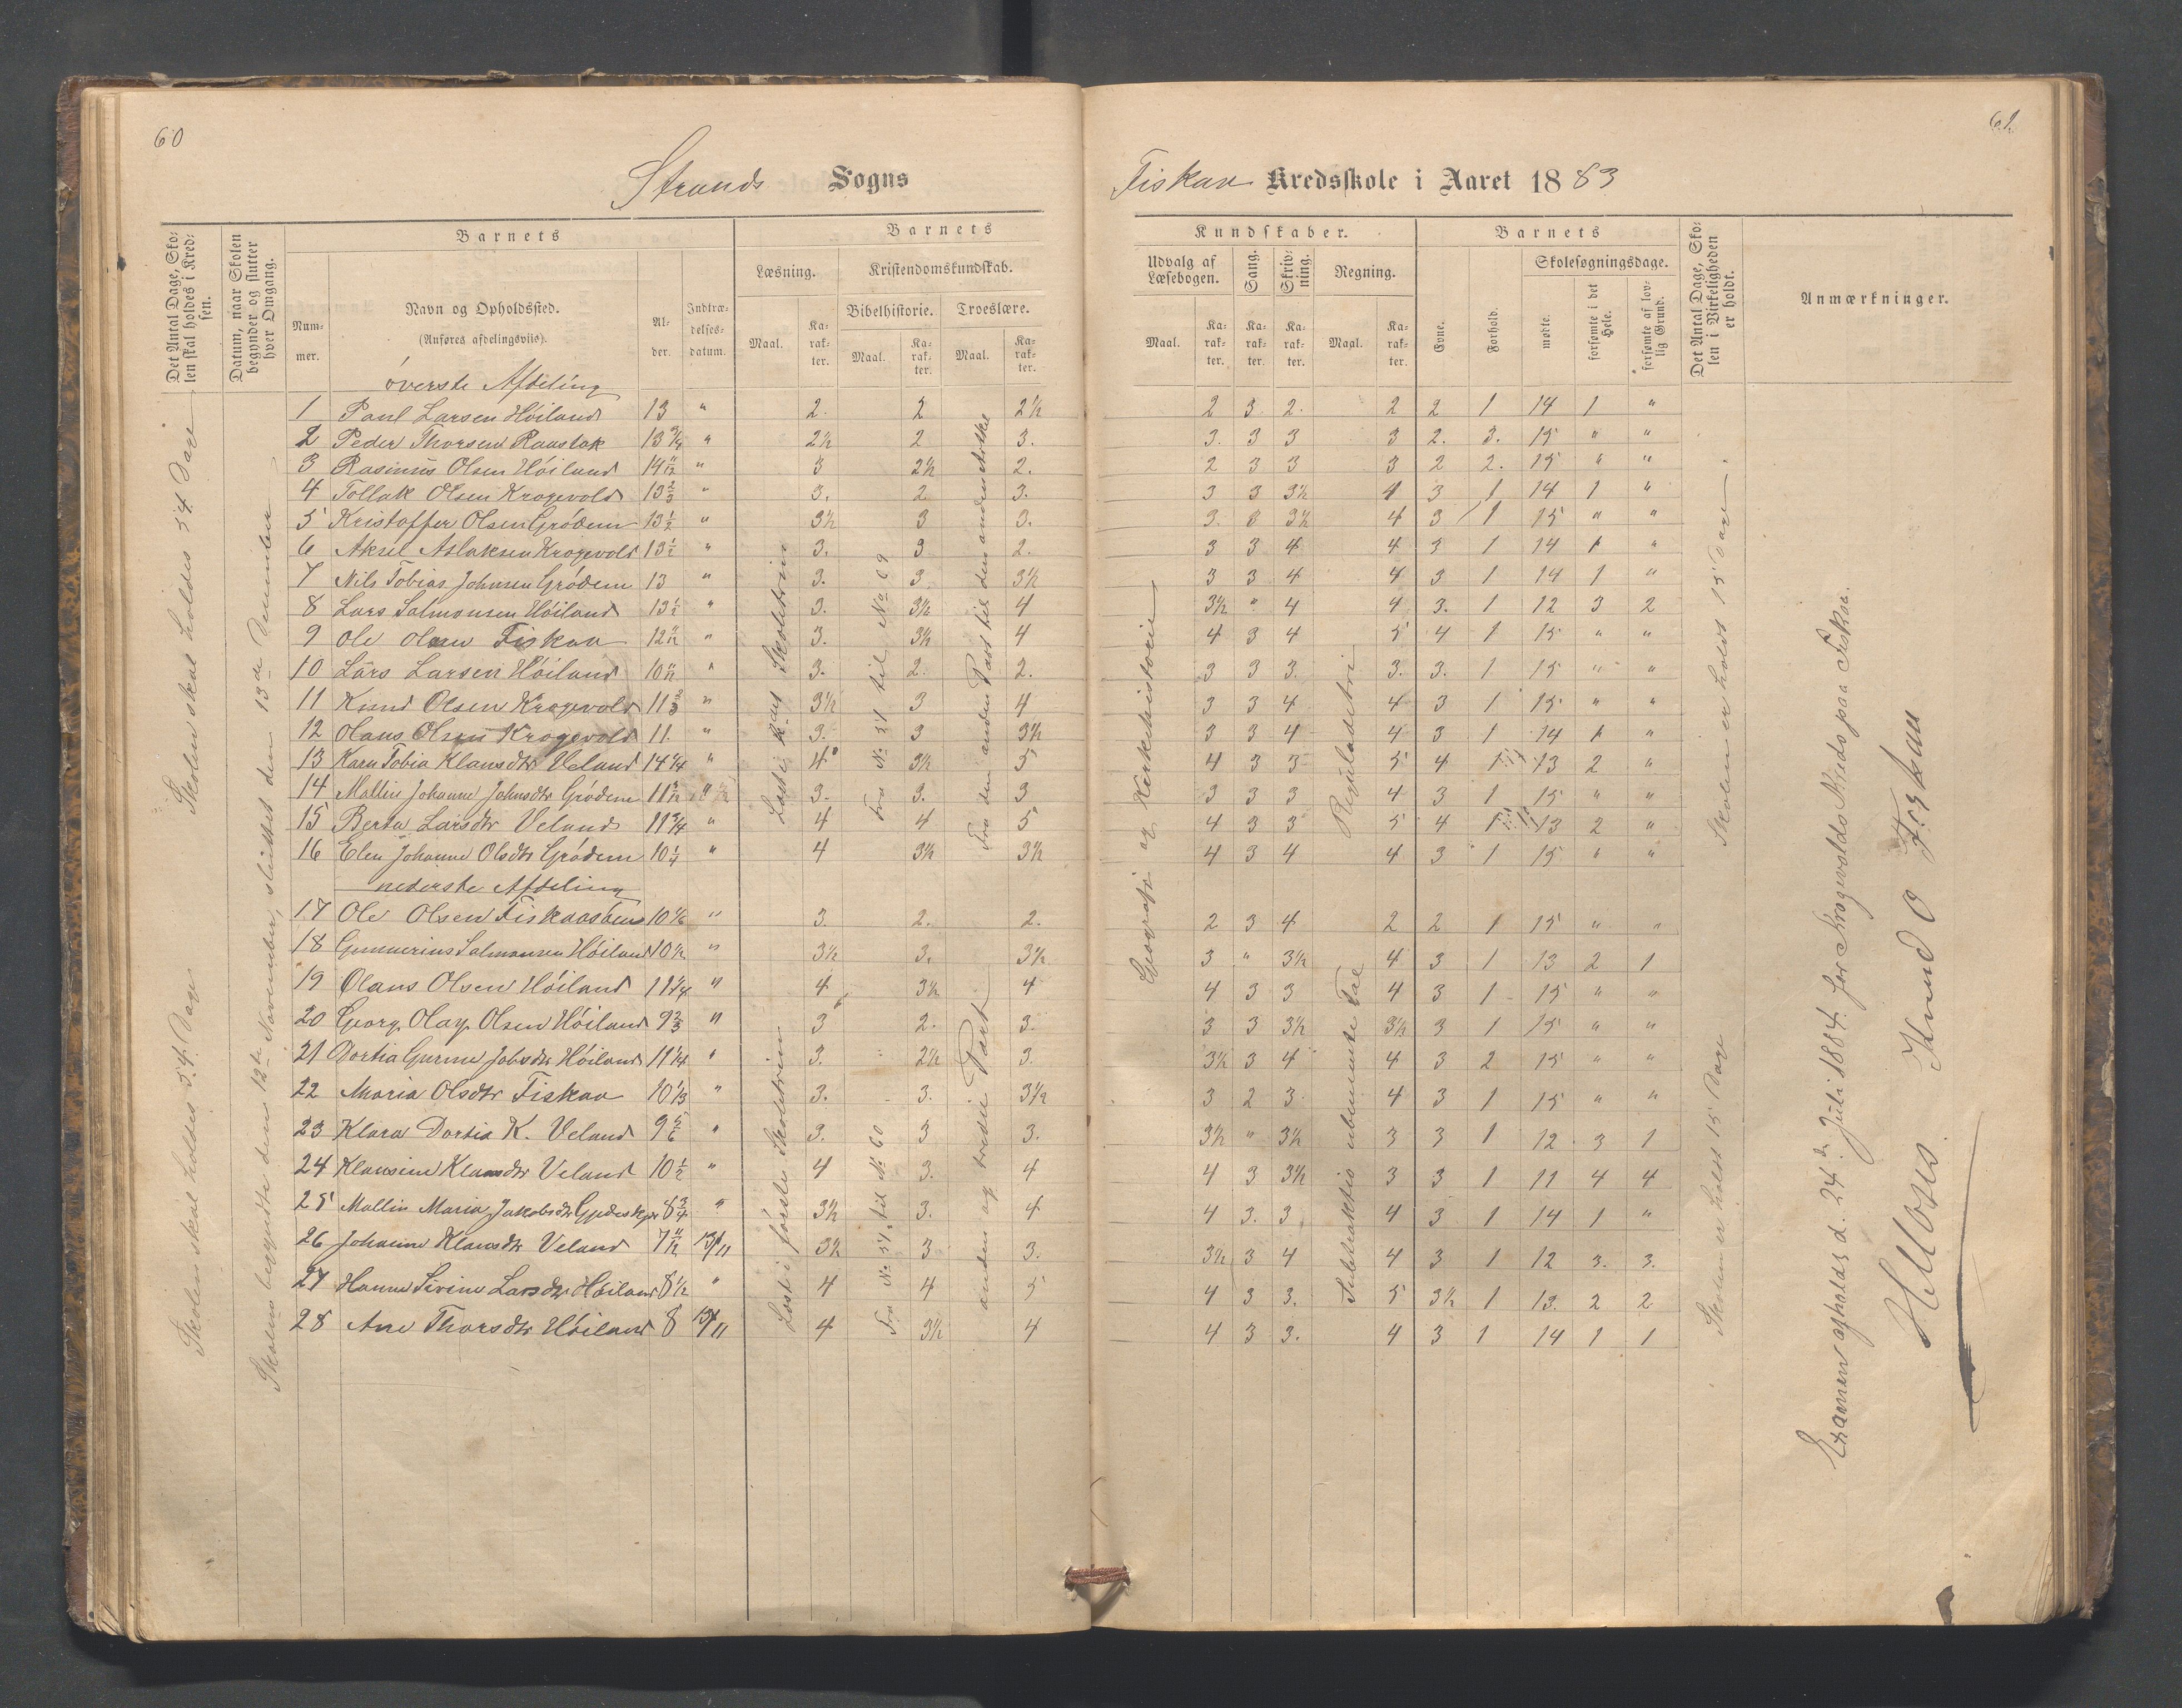 60
61
Strands Sogns
Fiskaa Kredsskole i Aaret 1883
Det Antal Dage, Skolen skal holdes i Kredsen.
Datum, naar Skolen begynder og slutter hver Omgang.
Barnets
Nummer.
Navn og Opholdssted.
(Anføres afdelingsviis).
Alder.
Indtrædelsesdatum.
Barnets
Læsning.
Kristendomskundskab.
Bibelhistorie.
Troeslære.
Maal.
Karakter.
Maal.
Karakter.
Maal.
Karakter.
Kundskaber.
Udvalg af Læsebogen.
Sang.
Skrivning.
Regning.
Maal.
Karakter.
Karakter.
Karakter.
Maal.
Karakter.
Barnets
Evne.
Forhold.
Skolesøgningsdage.
mødte.
forsømte i det Hele.
forsømte af lovlig Grund.
Det Antal Dage, Skolen i Virkeligheden er holdt.
Anmærkninger.
øverste Afdeling
1 Paul Larsen Høiland 13 " 2. 2 2½ 2 3 2. 2 2 1 14 1 "
2 Peder Thorsen Raustak 13¾ " 2½ 2 3. 3. 3 3 3 2. 3. 15 " "
3 Rasmus Olsen Høiland 14 11/12 " 3 2½ 2. 2 3 3 3 2 2. 15 " "
4 Tollak Olsen Krogevold 13⅔ " 3. 2 3. 3 3 3½ 4 3 1 14 1 "
5 Kristoffer Olsen Grødem 13½ " 3½ 3 3. 3. 3 3½ 4 3 1 15 " "
6 Aksel Aslaksen Krogevold 13½ " 3. 3 2. 3 3 4 4 3 1 14 1 "
7 Nils Tobias Johnsen Grødem 13 " 3. 3 3½ 3 3 4 4 3 1 14 1 "
8 Lars Salmonsen Høiland 13½ " 3. 3½ 4 3½ " 4 4 3. 1 12 3 2
9 Ole Olsen Fiskaa 12 11/12 " 3. 3½ 4 4 3 4 5 4 1 15 " "
10 Lars Larsen Høiland 10 11/12 " 3. 2. 2. 3 3 3. 3. 3. 1 15 " "
11 Knud Olsen Krogevold 11⅔ " 3½ 3 4 3 3 4 4 3 1 15 " "
12 Olaus Olsen Krogevold 11. " 3. 3 3½ 3 3 4 4 3 1 14 1 "
13 Karn Tobia Klausdtr Veland 14¼ " 4 3½ 5 4 3 3 5 4 1 13 2 "
14 Mallin Johanne Johnsdtr Grødem " 3. 3. 3 3 3 3 4 3 1 15 " "
15 Berta Larsdtr Veland 11¾ " 4 4 5 4 3 3 5 4 1 13 2 "
16 Elen Johanne Olsdtr Grødem 10¼ " 4 3½ 3½ 4 3 4 4 3 1 15 " "
nederste Afdeling
17 Ole Olsen Fiskaaaasen 10⅙ " 3. 2. 2. 2 3 4 2 2 1 15 " "
18 Gunnerius Salmonsen Høiland 10½ " 3½ 3. 3½ 3 " 3½ 4 3 1 13 2 1
19 Olaus Olsen Høiland 11¼ " 4 3½ 4 4 3 3 4 3 1 15 " "
20 Georg Olay Olsen Høiland 9⅔ " 3 2. 3. 3 3 3½ 3½ 3 1 15 " "
21 Dortia Gurine Johsdtr Høiland 11¼ " 3. 2½ 3. 3½ 3 4 4 3 2 15 " "
22 Maria Olsdtr Fiskaa 10⅓ " 3. 3. 3½ 3 2 3 4 3 1 15 " "
23 Klara Dortia K. Veland 9⅚ " 3. 3 3. 3½ " 3½ 3 3 1 12 3 1
24 Klausine Klausdtr Veland 10½ " 4 3. 4 4 3 3½ 3 3 1 11 4 4
25 Mallin Maria Jakobsdtr 8¾ " 3½ 3. 4 4 3. 3 4 3 1 14 1 "
26 Johanne Klausdtr Veland 7 11/12 13/11 3½ 3 3. 3½ 3 4 4 3 1 12 3. 3.
27 Hanne Sirine Larsdtr Høiland 8½ " 4 4 5 4 3 3. 5 3½ 1 13. 2 2
28 Ane Thorsdtr Høiland 8 13/11 4 3½ 4 4 3 3. 4 3 1 14 1 1
Skolen skal holdes 54 Dage
Skolen skal holdes 54 Dage
Skolen begyndte den 12te November, sluttet den 13de December
Læst i Skoletrin
Læst i første Skoletrin
Fra No 51 til No 69
Fra No 51 til No 60
Fra den anden Part til den anden Artikel
anden og tredie Part
Geografi og Kirkehistorie
Reguladetri
Subtraktion ubenævnte Tal
Skolen er holdt 15 Dage
Skolen er holdt 15 Dage
Examen afholdt d. 24de Juli 1884 for Krogevolds Kreds paa Fiskaa.
Knud O Fiskaa